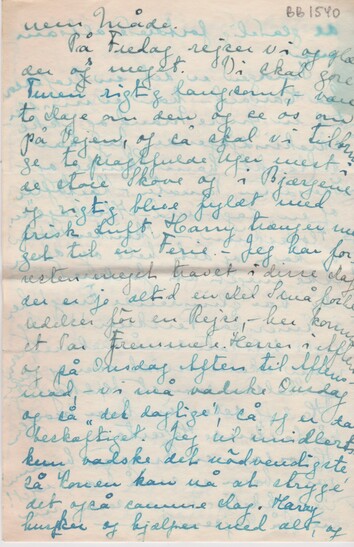 BB1540
nem Maade.
Paa Fredag rejser vi og glæ
der os meget. Vi skal gøre
Turen rigtig langsomt, være
to dage om den og se os om
paa Vejen, og saa skal vi tilbrin
ge to pragtfulde Uger mest i
de store Skove og i Bjærgene
og rigtig blive fyldt med
frisk Luft. Harry trænger me
get til en Ferie. - Jeg har for
resten meget travlt i disse dage
der er jo altid en del Smaa forbe
redelser for en Rejse, - her kommer
et Par Fremmede Herrer i Aften
og paa Onsdag Aften til Aftens
mad, vi maa vadske Onsdag
og saa "det daglige", saa jeg er
beskæftiget. Jeg vil imidlertid
kun vadske det nødvendigste
saa Konen kan naa at stryge
det ogsaa samme dag. Harry
hjælper med alt, og